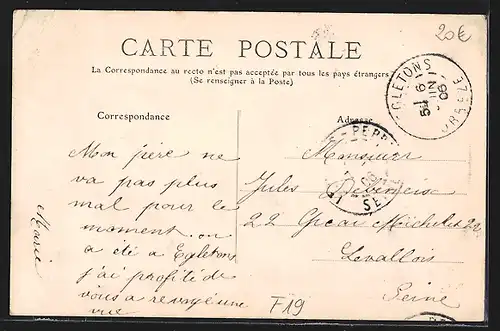 20€
CARTE POSTALE
La Correspondance au recto n'est pas acceptée par tous les pays étrangers
(Se renseigner à la Poste)
Correspondance
Adresse
EGLETONS
CORREZE
Mon père ne
va pas plus
mal pour le
moment on
a été a Egletons
j'ai profité de
vous a revoye une
vue
Marie
Monsieur
Jules
22 Quai Michelet 22
Levallois
Seine
PERRET
SEINE
F19